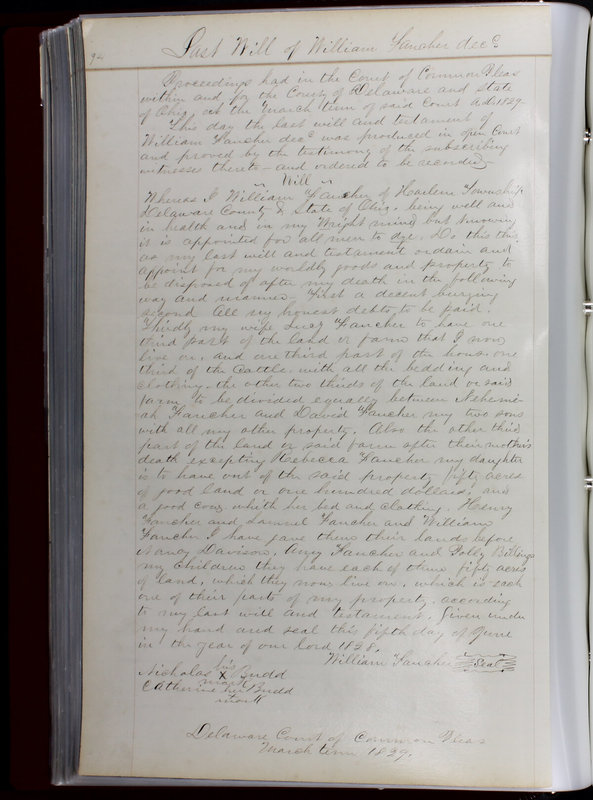 92
Last Will of William Fancher decd
Proceedings had in the Court of Common Pleas
within and for the County of Delaware and State
of Ohio, at the March term of said Court A.D. 1829
This day the last will and testament of
William Fancher decd was produced in open Court
and proved by the testimony of the subscribing
witnesses thereto and ordered to be recorded
Will
Whereas I William Fancher of Harlem Township
Delaware County & State of Ohio, being well and
in health and in my Wright mind but knowing
it is appointed for all men to dye, Do this
as my last will and testament ordain and
appoint for my worldly goods and property to
be disposed of after my death in the following
way and manner. First a decent burying
second All my honest debts to be paid.
Thirdly my wife Lucy Fancher to have one
third part of the land or farm that I now
live on, and one third part of the house one
third of the Cattle with all the bedding and
clothing. the other two thirds of the land or said
farm to be divided equally between Nehemi-
ah Fancher and David Fancher my two sons
with all my other property. Also the other third
part of the land or said farm after their mother's
death, excepting Rebecca Fancher my daughter
is to have out of the said property fifty acres
of good land or one hundred dollars, and
a good cow, whith her bed and clothing. Henry
Fancher and Samuel Fancher and William
Fancher I have gave them their lands before
Nancy Davison, Amy Fancher and Polly Billings
my children they have each of them fifty acres
of land, which they now live on, which is each
one of their parts of my property, according
to my last will and testament. Given under
my hand and seal this fifth day of June
in the year of our Lord 1828.
William Fancher Seal
his
Nicholas X Budd
mark
Catherine her Budd
mark
Delaware Court of Common Pleas
March term 1829.